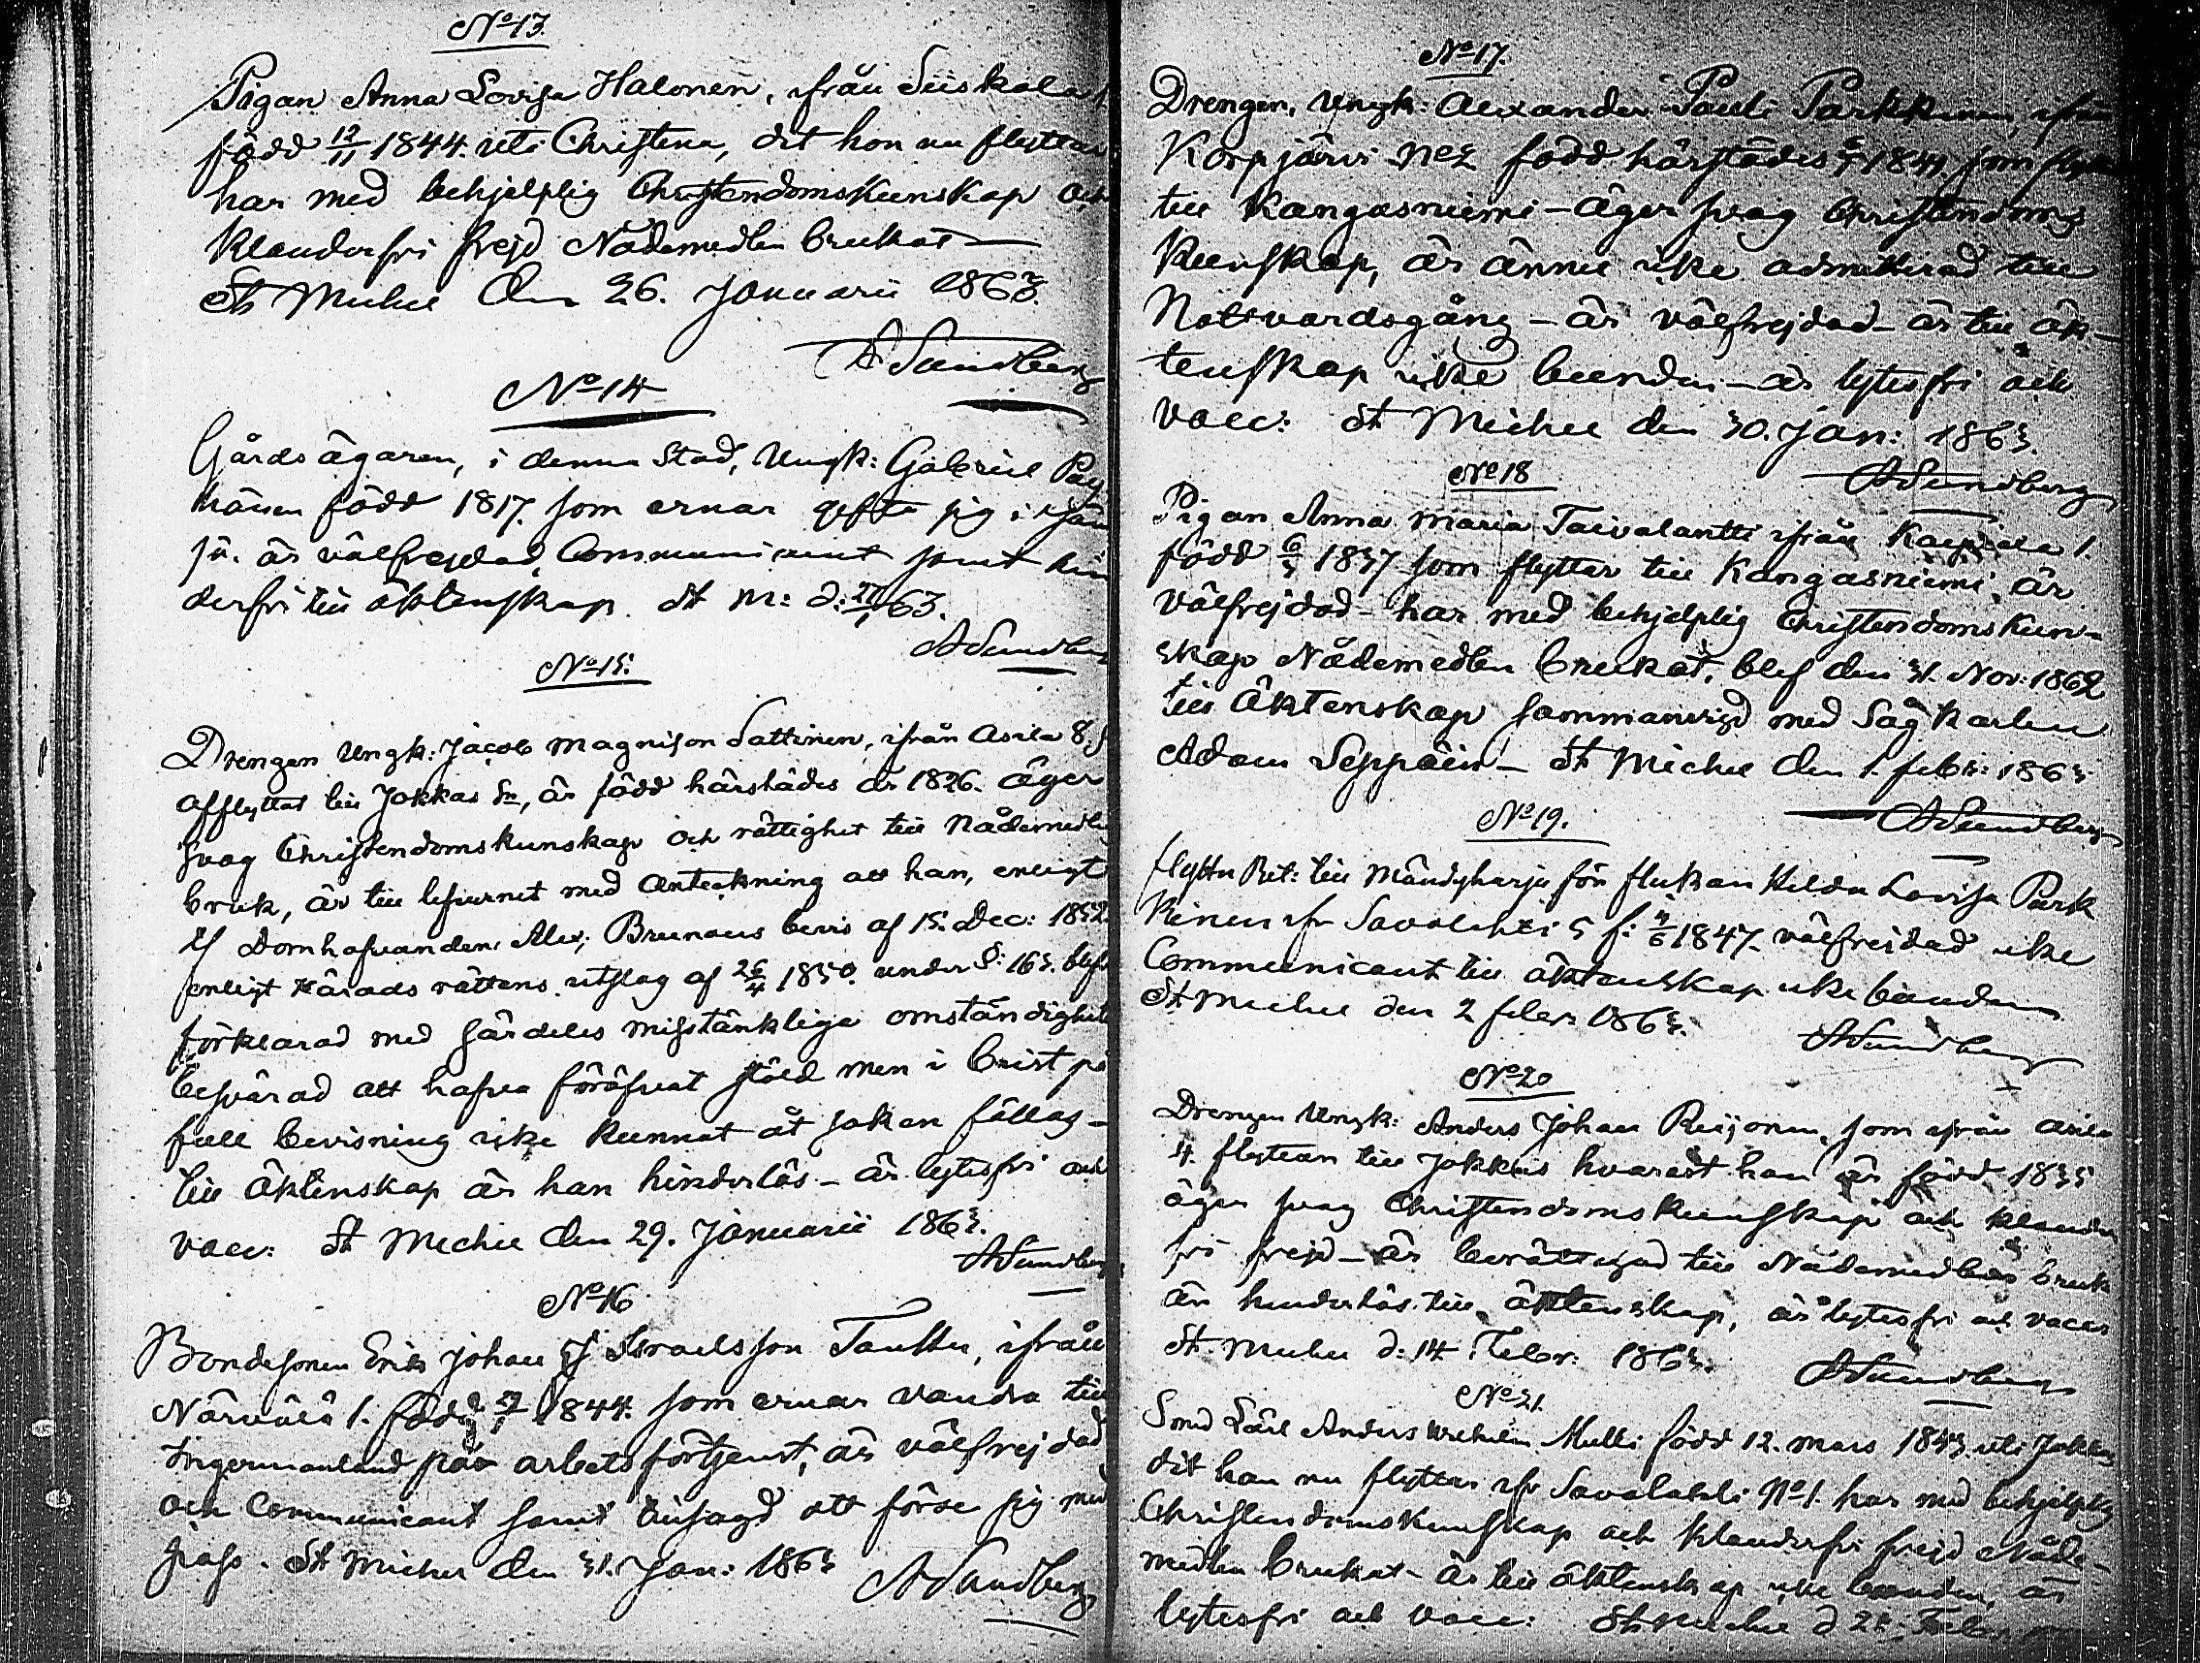 No 13.
Pigan Anna Lovisa Halonen, ifrån Siiskala
född 12/11 1844. uti Christina, dit hon nu flyttar
har med behjelplig Christendomskunskap och
klanderfri frejd Nådemedlen brukat —
St Michel den 26. Januarii 1863.
A Sundberg
No 14
Gårdsägaren, i denna Stad, Ungk: Gabriel Pöy
hönen född 1817. som ernar gifta sig i
är välfrejdad, Communicant samt hin
derfri till äktenskap. St M: d: 27/1 63.
A Sundberg
No 15.
Drengen Ungk: Jacob Magnison Lattinen, ifrån Asila 8.
afflyttat till Jokkas Sn, är född härstädes år 1826. äger
svag Christendomskunskap och rättighet till Nådemedlens
bruk, är till lefvernet med anteckning att han, enligt
Domhafvanden Alex: Brunous bevis af 15. Dec: 1852.
enligt Härads rättens utslag af 26/4 1850. under §: 163. blifvit
förklarad med särdeles misstänkliga omständigheter
besvärad att hafva föröfvat stöld men i brist på
full bevisning icke kunnat åt saken fällas —
till äktenskap är han hinderlös — är lytesfri och
vacc: St Michel den 29. Januarii 1863.
A Sundberg
No 16
Bondesonen Erik Johan Israelsson Tanttu, ifrån
Närvälä 1. född 1844. som ernar vandra till
Ingermanland på arbetsförtjenst, är välfrejdad
och Communicant samt tillsagd att förse sig med
pass. St Michel den 31. Jan: 1863
A Sundberg
No 17.
Drengen, Ungk: Alexander Pauli Parkkinen, ifrån
Korpjärvi No 2 född härstädes 1844 som flyttar
till Kangasniemi — äger svag Christendoms
kunskap, är ännu icke admitterad till
Nattvardsgång — är välfrejdad — är till äk-
tenskap icke bunden — är lytesfri och
vacc: St Michel den 30. Jan: 1863.
A Sundberg
No 18
Pigan Anna Maria Taivalantti ifrån 1.
född 6/3 1837 som flyttar till Kangasniemi, är
välfrejdad — har med behjelplig Christendomskun-
skap Nådemedlen brukat. blef den 31. Nov: 1862
till Äktenskap sammanvigd med Sågkarlen
Adam Seppäin — St Michel den 1. febr: 1863.
A Sundberg
No 19.
flyttn Bet: till Mändyharju för flickan Hilda Lovisa Park
kinen ifr Savolahti 5 f: 4/6 1847. välfrejdad icke
Communicant till äktenskap icke bunden
St Michel den 2 febr 1863.
A Sundberg
No 20
Drengen Ungk: Anders Johan Reijonen, som ifrån Asila
4. flyttar till Jokkas hvarest han är född 1835
äger svag Christendomskunskap och klander
fri frejd — är berättigad till Nådemedlens bruk
är hinderlös till äktenskap, är lytesfri och vacc:
St Michel d: 14. Febr: 1863.
A Sundberg
No 21.
Smed Lärl Anders Wilhelm Mulli född 12. mars 1843 uti Jokkas
dit han nu flyttar ifr Savolahti No 1. har med behjelplig
Christendomskunskap och klanderfri frejd Nåde-
medlen brukat — är till äktenskap icke bunden, är
lytesfri och vacc: St Michel d Febr.